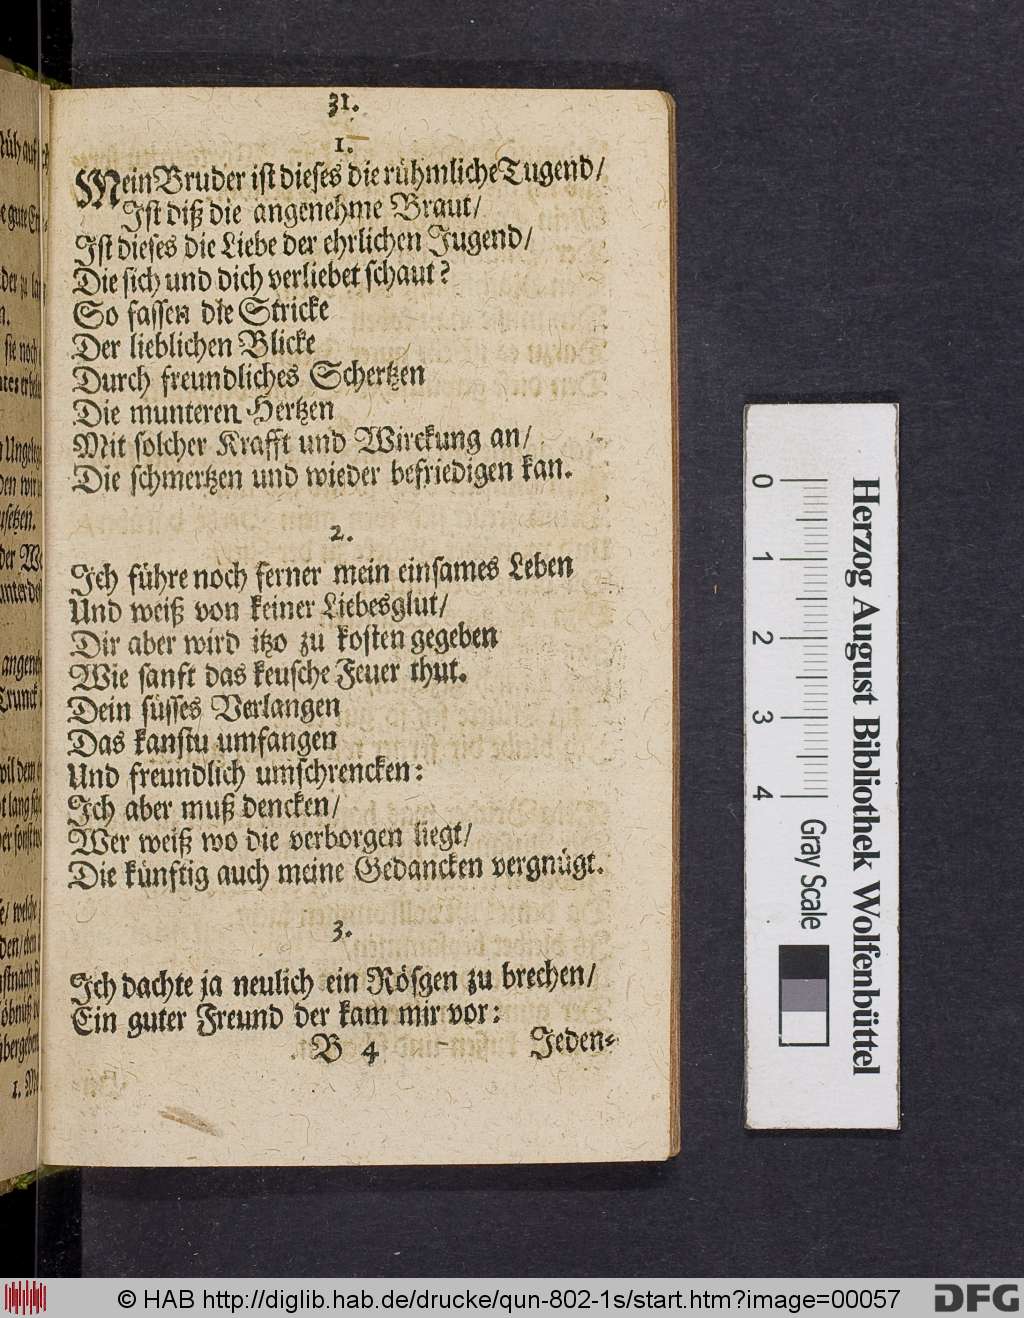 31.
1.
Mein Bruder ist dieses die rühmliche Tugend/
Ist diß die angenehme Braut/
Ist dieses die Liebe der ehrlichen Jugend/
Die sich und dich verliebet schaut?
So fassen die Stricke
Der lieblichen Blicke
Durch freundliches Schertzen
Die munteren Hertzen
Mit solcher Krafft und Wirckung an/
Die schmertzen und wieder befriedigen kan.
2.
Ich führe noch ferner mein einsames Leben
Und weiß von keiner Liebesglut/
Dir aber wird itzo zu kosten gegeben
Wie sanft das keusche Feuer thut.
Dein süsses Verlangen
Das kanstu umfangen
Und freundlich umschrencken:
Ich aber muß dencken/
Wer weiß wo die verborgen liegt/
Die künftig auch meine Gedancken vergnügt.
3.
Ich dachte ja neulich ein Rösgen zu brechen/
Ein guter Freund der kam mir vor:
B 4 Jeden-
0 1 2 3 4
Gray Scale
Herzog August Bibliothek Wolfenbüttel
© HAB http://diglib.hab.de/drucke/qun-802-1s/start.htm?image=00057
DFG